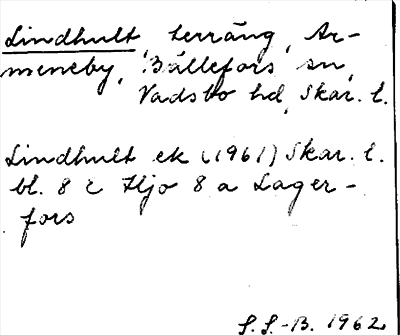 Lindhult, terräng, Ar-
meneby, Bällefors sn,
Vadsbo hd, Skar. l.
Lindhult ek (1961) Skar. l.
bl. 8 c Hjo 8 a Lager-
fors
S.S.-B. 1962.